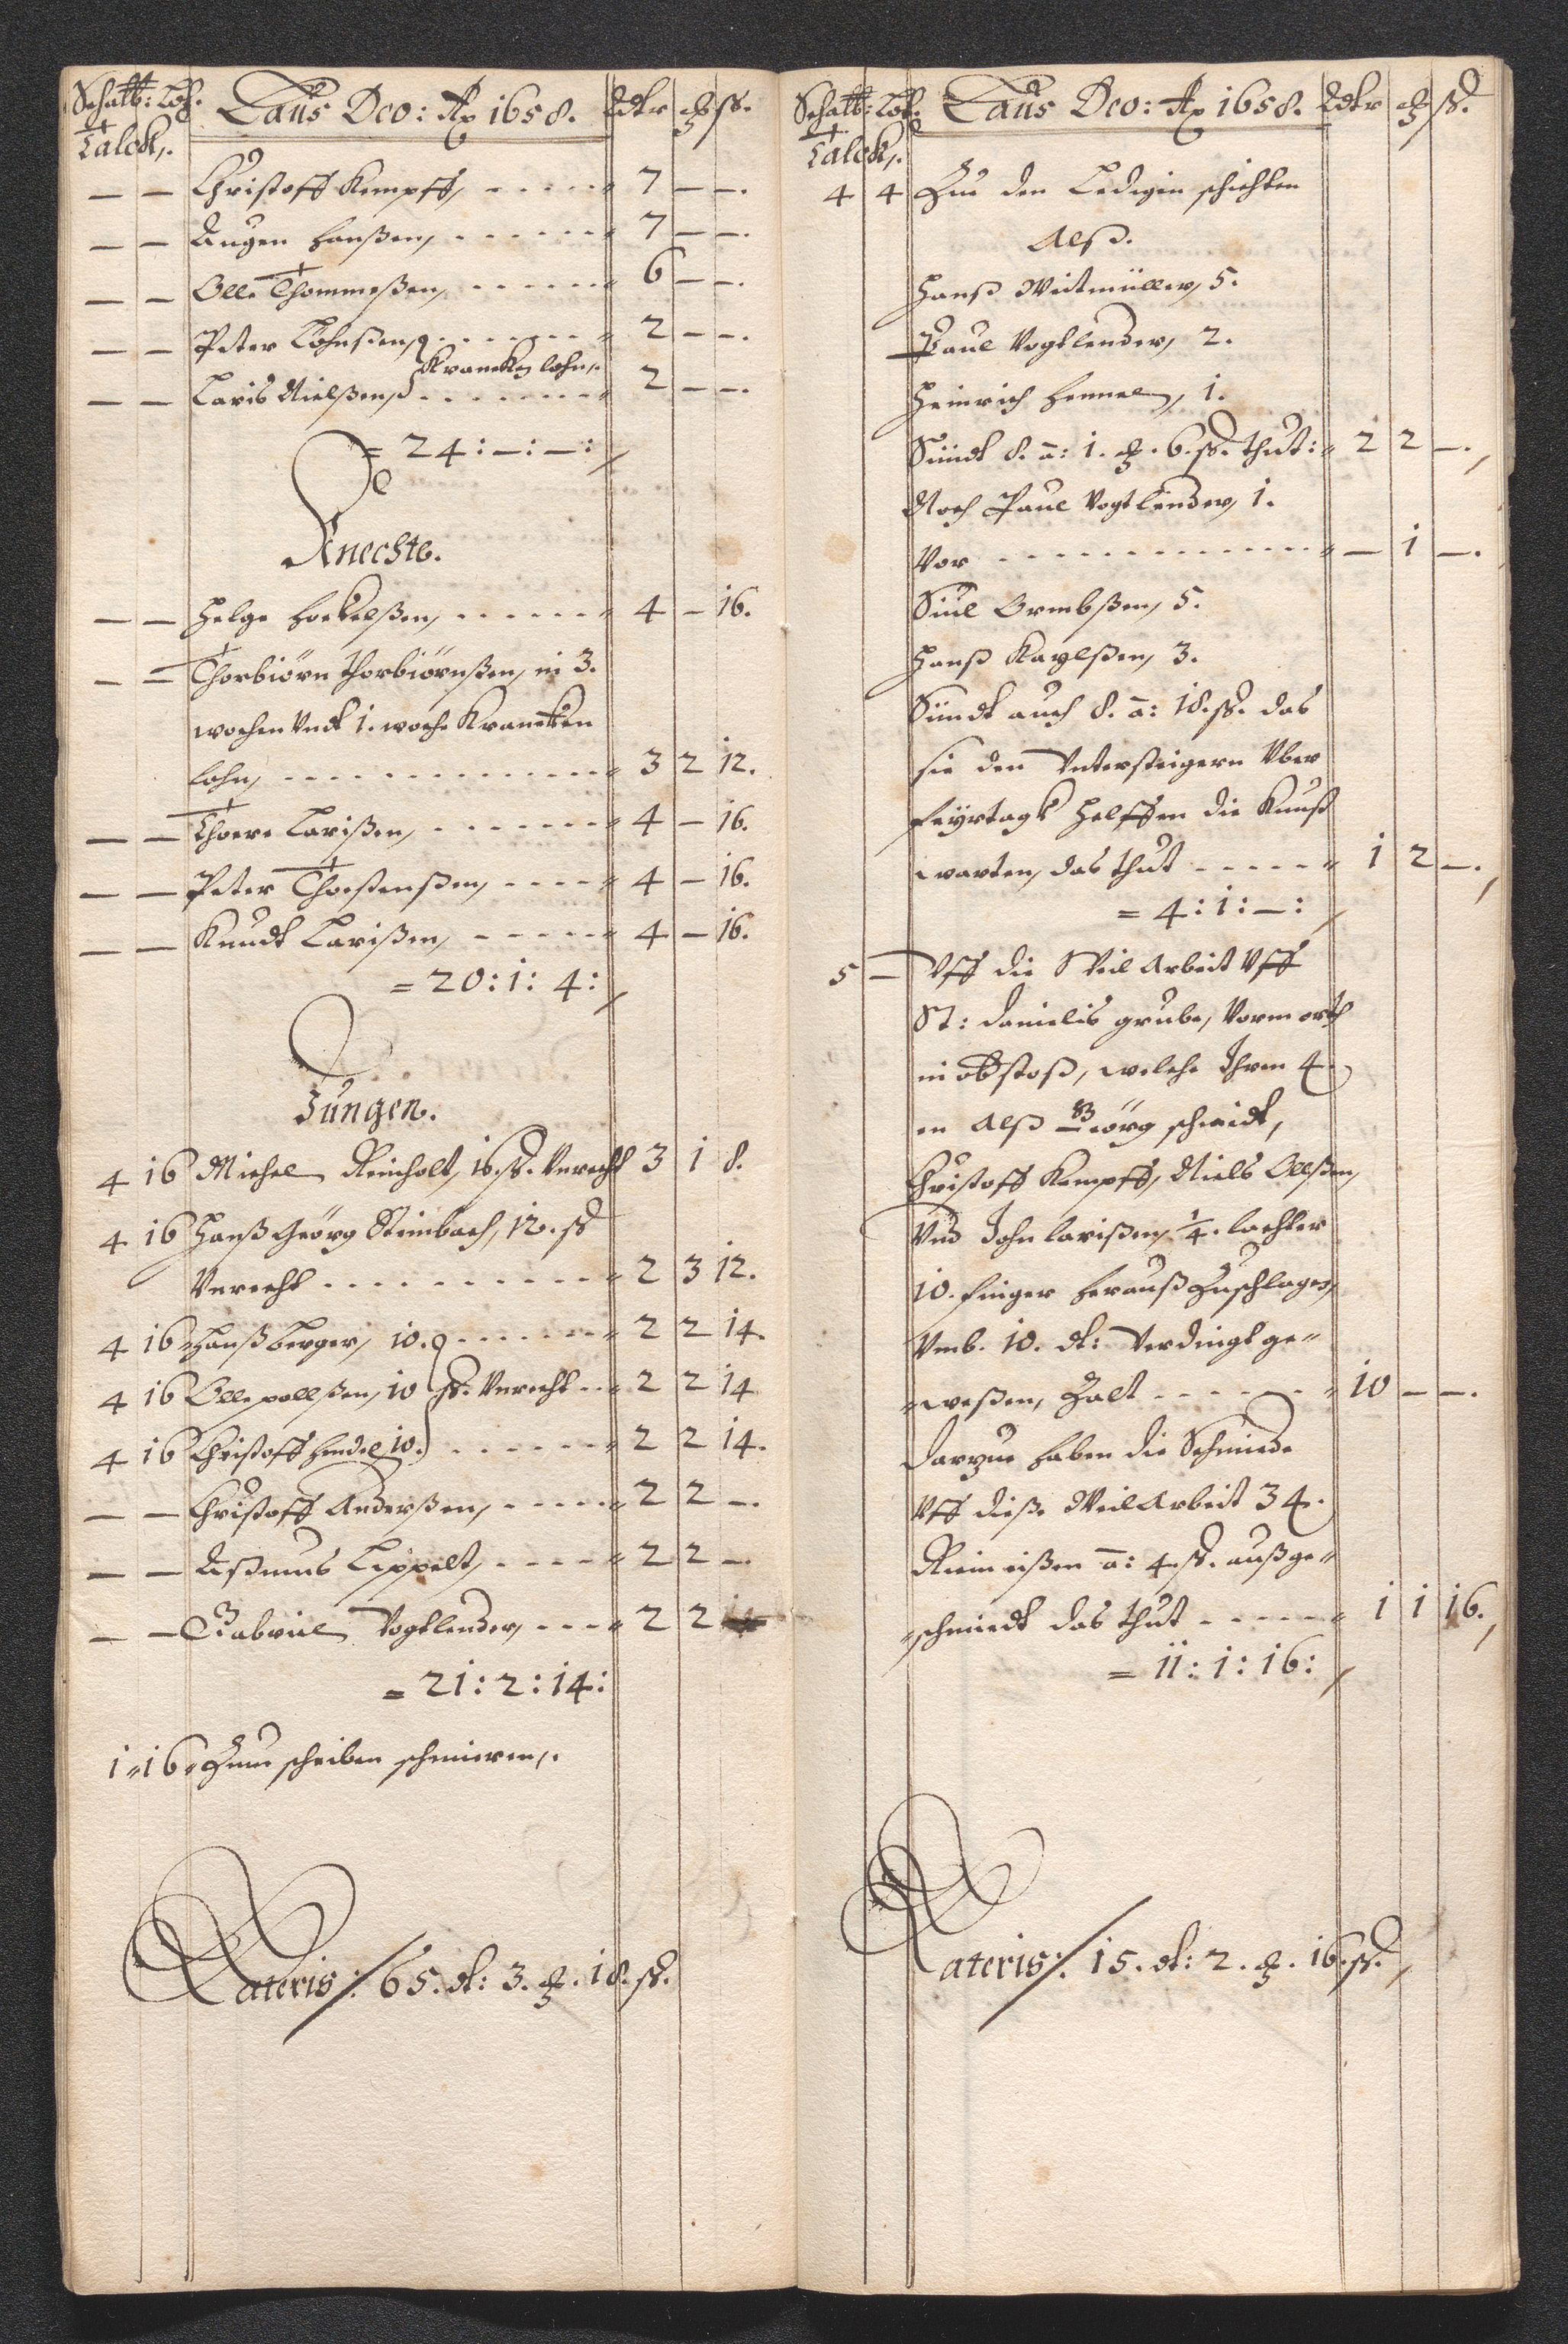 Schatt: Lof. Laus Deo: Ao 1658. Rdlr ß.
Talck,.
— — Christoff Kempff, - - - - - 7 — —.
— — Augen Hanßen, - - - - - - 7 — —.
— — Olle Thommeßen, - - - - - - 6 — —.
— — Peter Johnßen, - - - - - - 2 — —.
Krancken lohn,.
— — Laris Nielßen, - - - - - - 2 — —.
= 24: —: —:
Knechte.
— — Helge Hoekelßen, - - - - - - 4 — 16.
— — Thorbiörn Thorbiörnßen, in 3.
wochen Undt 1. woche Krancken
lohn, - - - - - - - - - - - - 3 2 12.
— — Thoere Larißen, - - - - - - - 4 — 16.
— — Peter Thoeßenßen, - - - - 4 — 16.
— — Knudt Larißen, - - - - - - 4 — 16.
= 20: 1: 4:
Jungen.
4 16 Michel Reinholt, 16. ß. Unrecht 3 1 8.
4 16 Hanß Geörg Steinbach, 12. ß
Unrecht - - - - - - - - - - 2 3 12.
4 16 Hanß Berger, 10. - - - - - - - 2 2 14.
4 16 Olle pollßen, 10 ß. Unrecht - - 2 2 14
4 16 Christoff Hendel 10. - - - - - - 2 2 14.
— — Christoff Anderßen, - - - - - 2 2 —.
— — Aßmus Lippelt, - - - - - 2 2 —
— — Gabriel Vogtlender, - - - 2 2
= 21: 2: 14:
1 16 Zum scheiben schmieren,.
Lateris:/: 65. dl: 3. 18. ß.
Schatt: Lof. Laus Deo: Ao 1658. Rdlr ß.
Talck,.
4 4 Zue den Ledigen schichten
Alß.
Hanß Weitmüller, 5.
Paul Vogtlender, 2.
Heinrich Hennel, 1.
Sündt 8. a: 1. 6. ß. thut: 2 2 —.
Noch Paul Vogtlender, 1.
Vor - - - - - - - - - - - - — 1 —.
Siul Ormbßen, 5.
Hanß Karlßen, 3.
Sündt auch 8. a: 18. ß. das
sie den Untersteigern Uber
feyrtagk helffen die Kunst
warten, das thut - - - - - 1 2 —.
= 4: 1: —:
5 — Uff die Weil Arbeit Uff
St: Danielis grube, Vorm orth
in obstoß, welche Ihren 4.
en Alß Geörg schmidt,
Christoff Kempff, Niels Ollßen,
Und John Larißen, 1/4. lachter
10. finger herauß Zuschlagen,
Umb. 10. dl: Verdingt ge-
weßen, Zalt - - - - - - 10 — —.
Darzue haben die Schmiede
Uff dieße Weil Arbeit 34.
Riem eißen a: 4. ß. außge-
schmiedt das thut - - - - - 1 1 16.
= 11: 1: 16:
Lateris:/: 15. dl: 2. 16. ß.